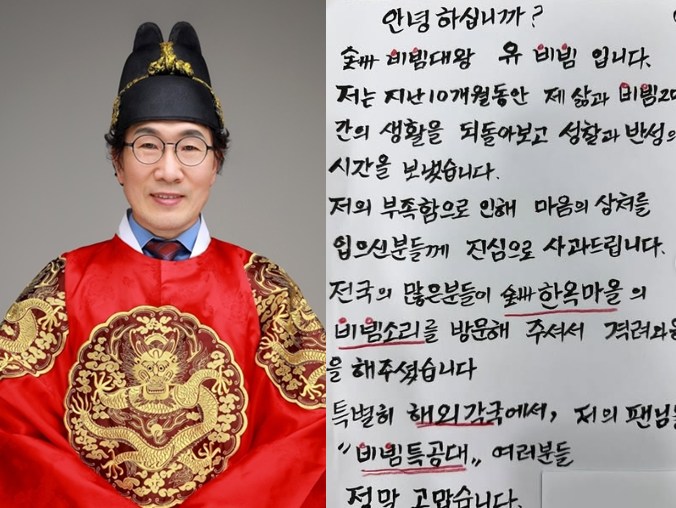 안녕하십니까?
全州 비빔대왕 유 비빔 입니다.
저는 지난10개월동안 제 삶과 비빔20
간의 생활을 되돌아보고 성찰과 반성의
시간을 보냈습니다.
저의 부족함으로 인해 마음의 상처를
입으신분들께 진심으로 사과드립니다.
전국의 많은분들이 全州 한옥마을의
비빔소리를 방문해 주셔서 격려와
을 해주셨습니다
특별히 해외각국에서, 저의 팬님들
"비빔특공대„ 여러분들
정말 고맙습니다.